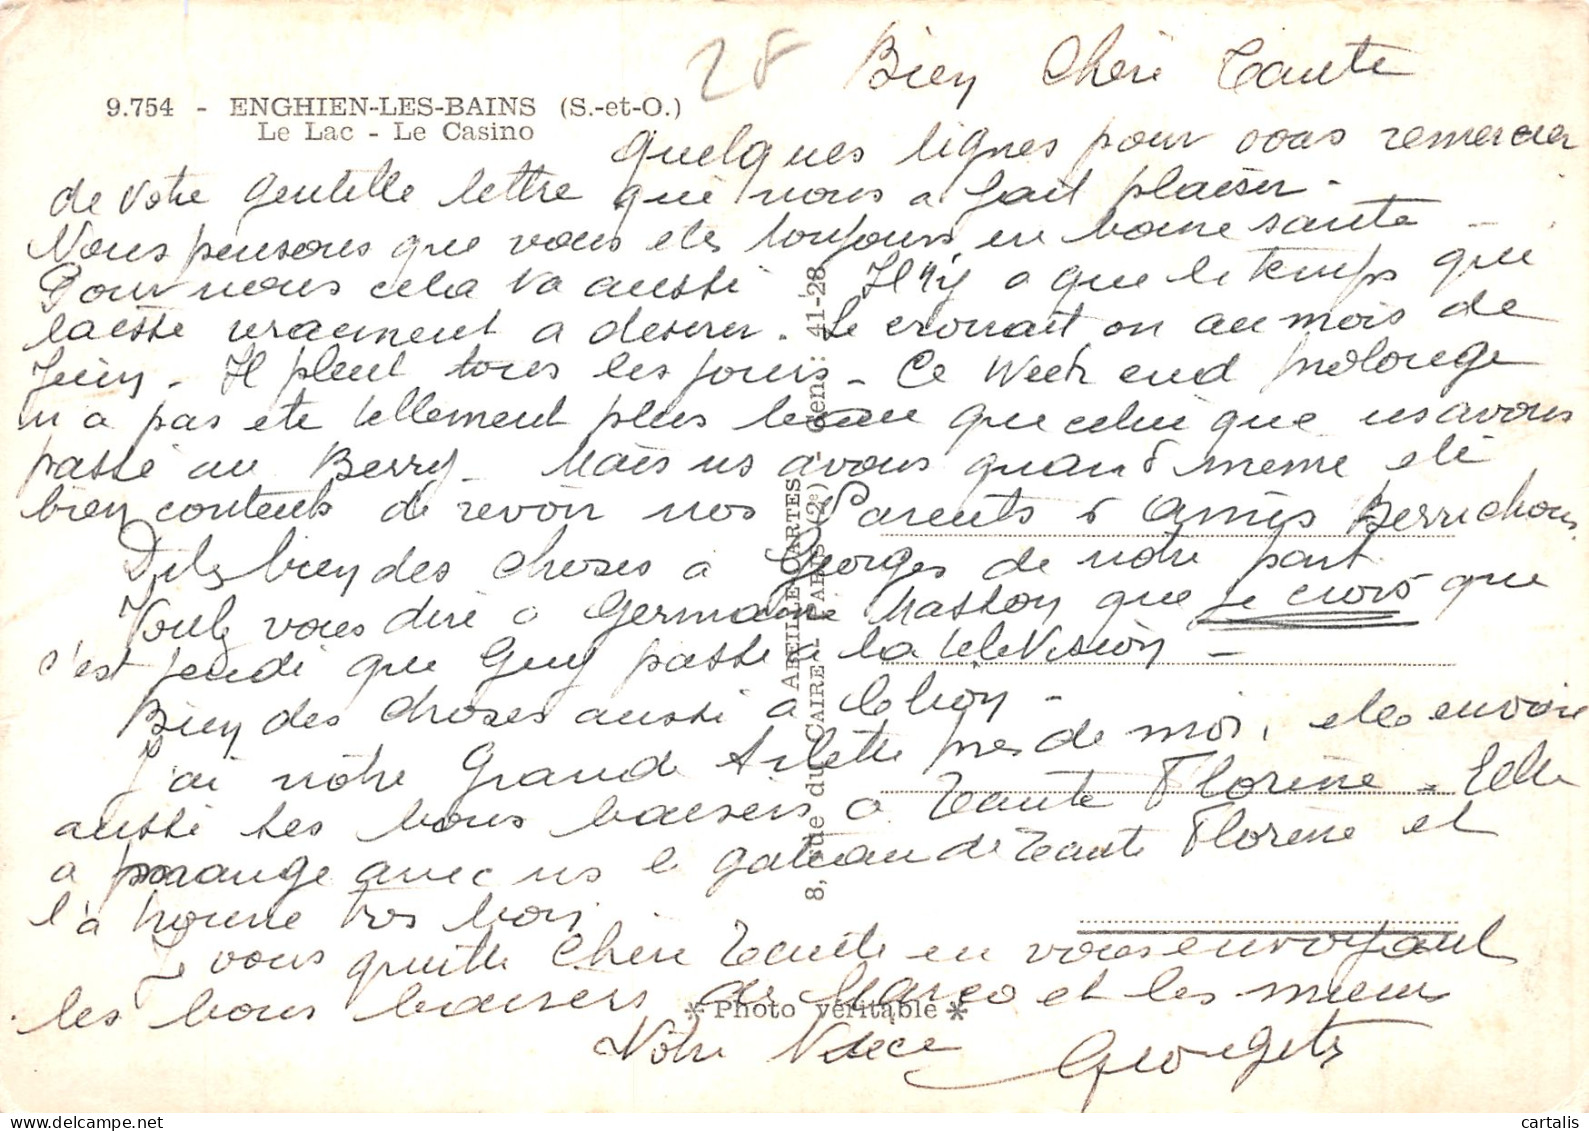 28
Bien Chère Tante
9.754 - ENGHIEN-LES-BAINS (S.-et-O.)
Le Lac - Le Casino
quelques lignes pour vous remercier
de votre gentille lettre qui nous a fait plaisir -
Nous pensons que vous etes toujours en bonne sante -
Pour nous cela va aussi Il n'y a que le temps qui
laisse vraiment a desirer. Se croirait on au mois de
Juin - Il pleut tous les jours - Ce Week end prolonge
n'a pas ete tellement plus beau que celui que ns avons
passé au Berry - Mais ns avons quand meme eté
bien contents de revoir nos Parents & amis Berrichons.
Dites bien des choses a Georges de notre part
Voulez vous dire a Germaine Masson que je crois que
c'est jeudi que Guy passe a la television -
Bien des choses aussi a
J'ai notre Grande Arlette pres de moi, elle envoie
aussi ses bons baisers a Tante Florine - Elle
a mange avec ns le gateau de Tante Florine et
l'a trouve tres bon
Je vous quitte Chère Tante en vous envoyant
les bons baisers de Marco et les miens
Votre Niece Georgette
ABEILLE-CARTES
8, rue du CAIRE - PARIS (2e) - Cen: 41-28
* Photo véritable *
cartalis